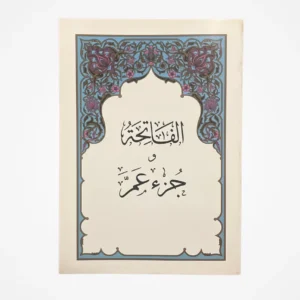 الفَاتِحَةُ
و
جُزء عَمَّ